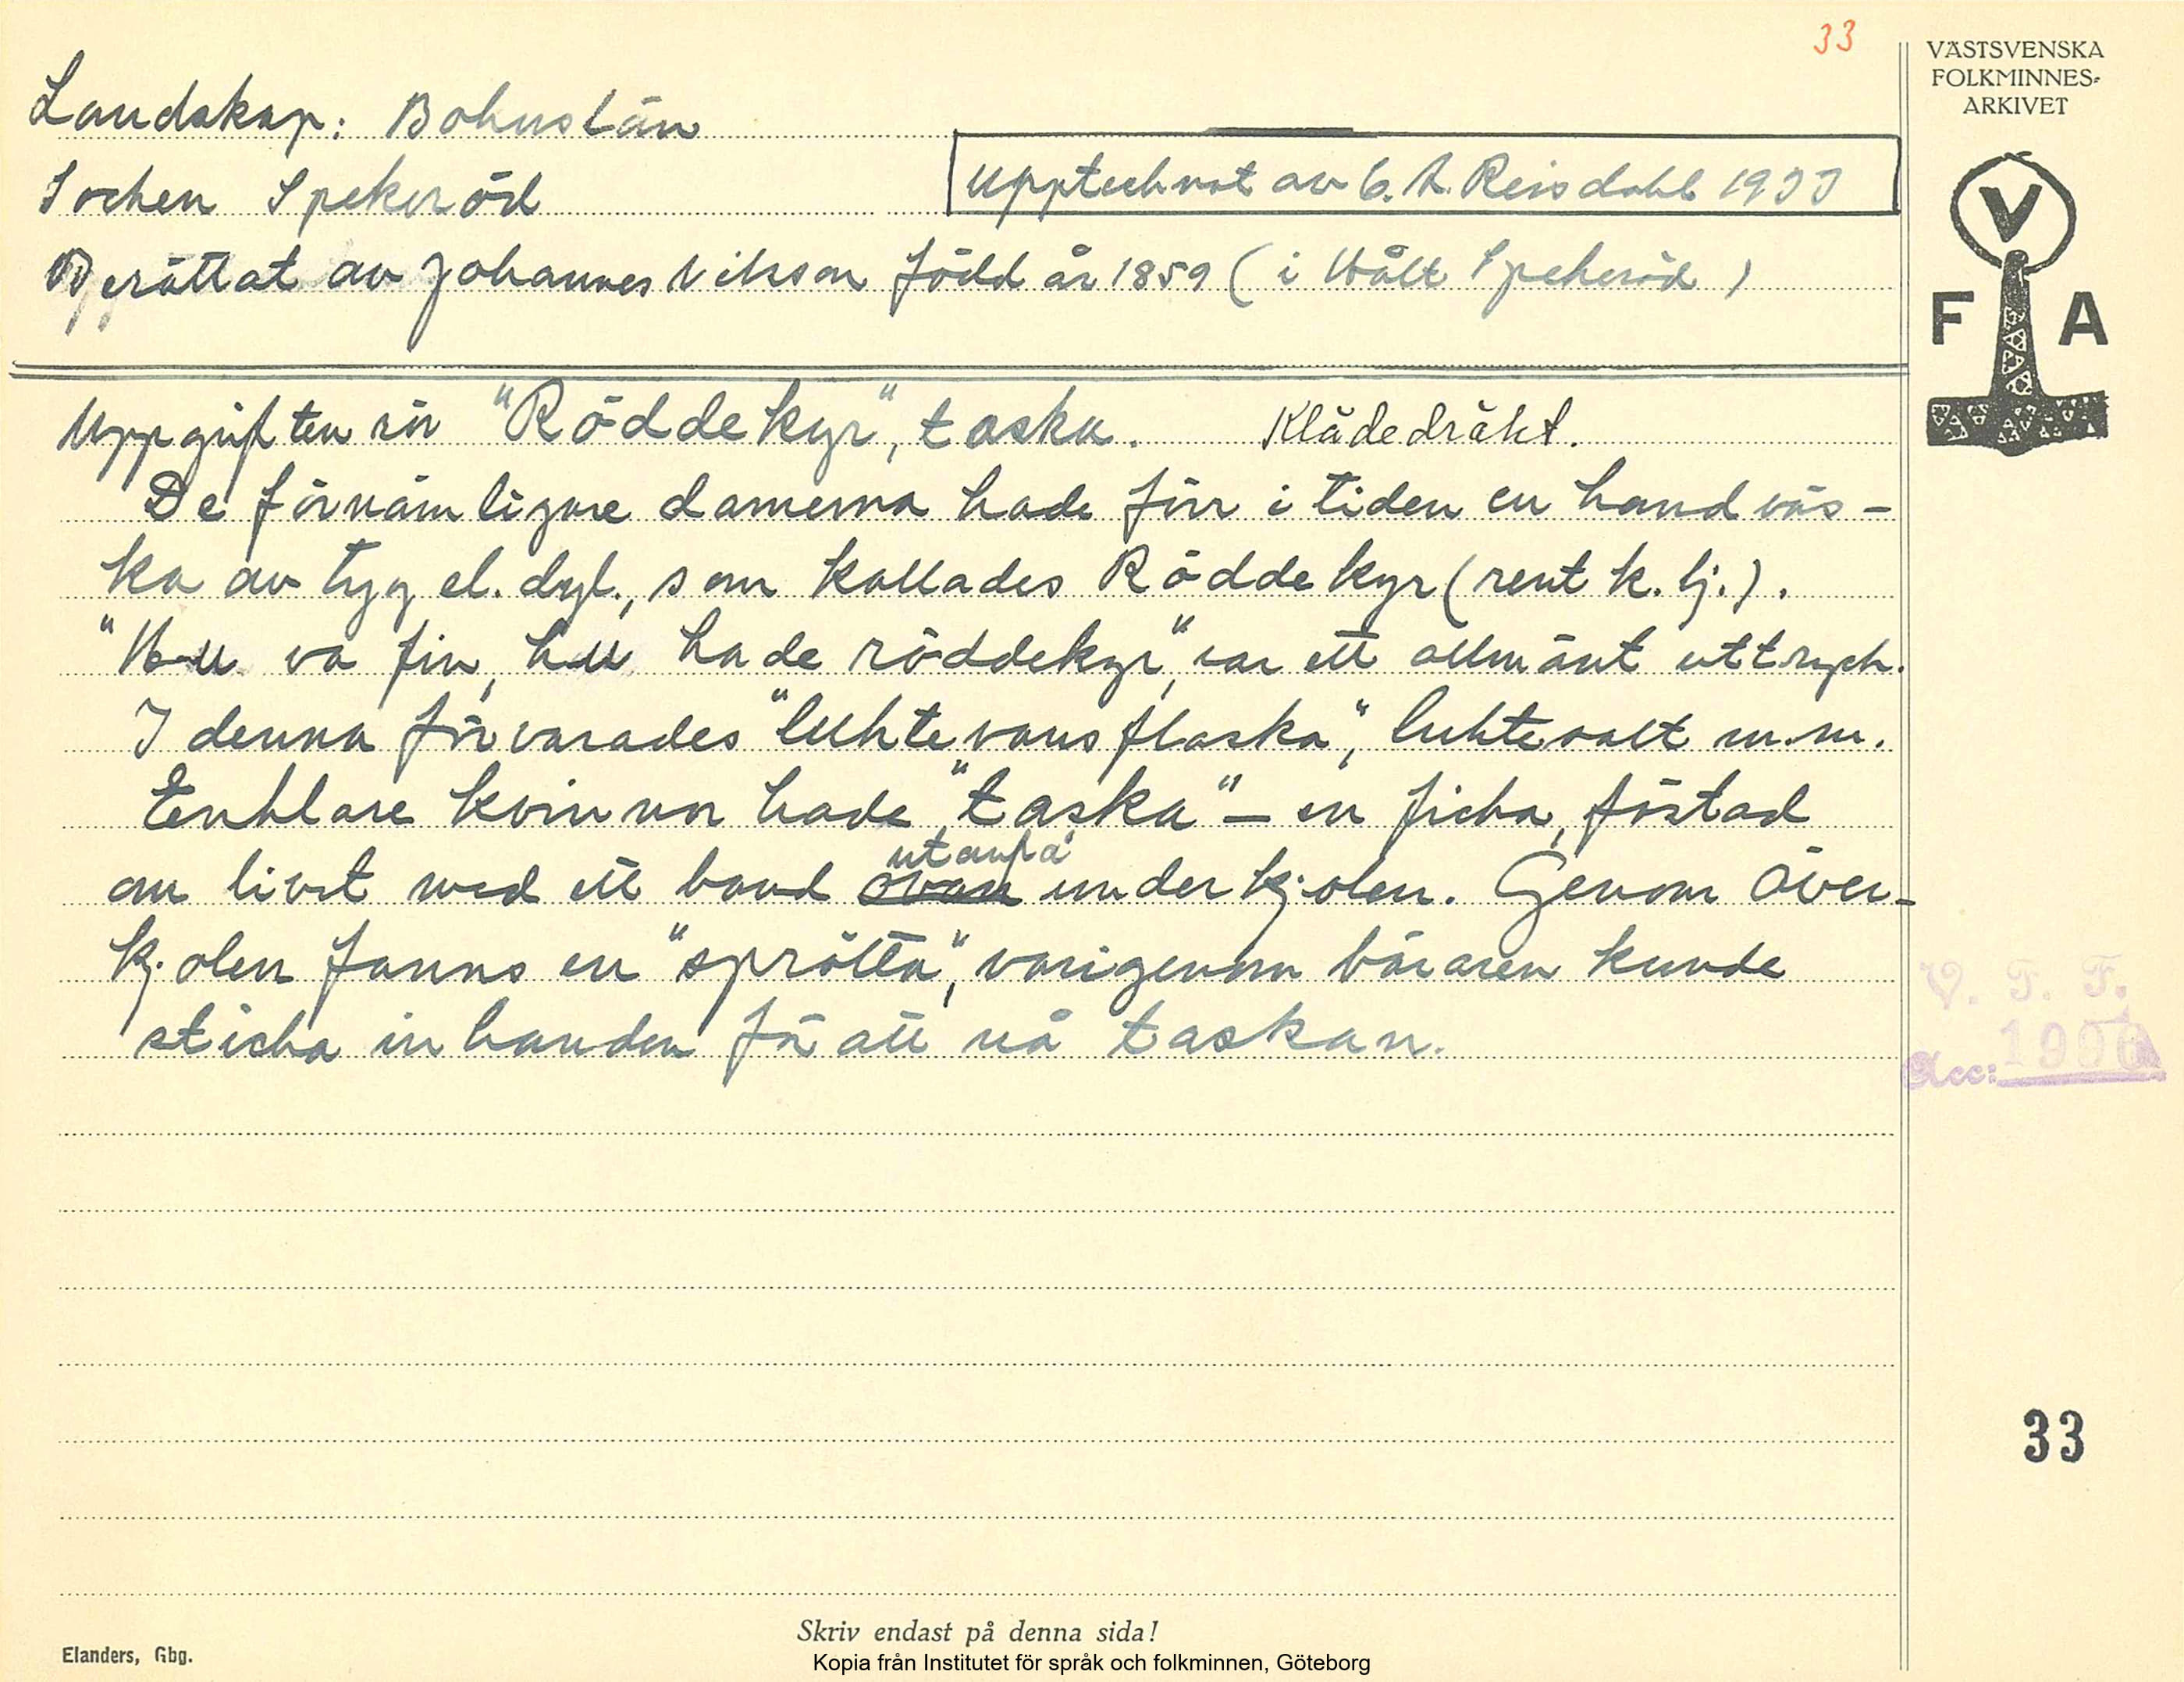 33
VÄSTSVENSKA
FOLKMINNES-
ARKIVET
Landskap: Bohuslän
Socken Spekeröd
Upptecknat av G. A. Reisdahl 1933
Berättat av Johannes Nilsson född år 1859 (i Hält Spekeröd)
V
F A
Uppgiften rör "Röddekyr", taska. Klädedräkt.
De förnämligare damerna hade förr i tiden en handväs-
ka av tyg el. dyl., som kallades Röddekyr (rent k. lj.).
"Hu va fin, hu hade röddekyr" var ett allmänt uttryck.
I denna förvarades "luktevansflaska", luktesalt m.m.
Enklare kvinnor hade "taska" – en ficka, fästad
om livet med ett band ovan utanpå underkjolen. Genom över-
kjolen fanns en "sprätta", varigenom bäraren kunde
sticka in handen för att nå taskan.
V. F. F.
Acc:
33
Skriv endast på denna sida!
Elanders, Gbg.
Kopia från Institutet för språk och folkminnen, Göteborg